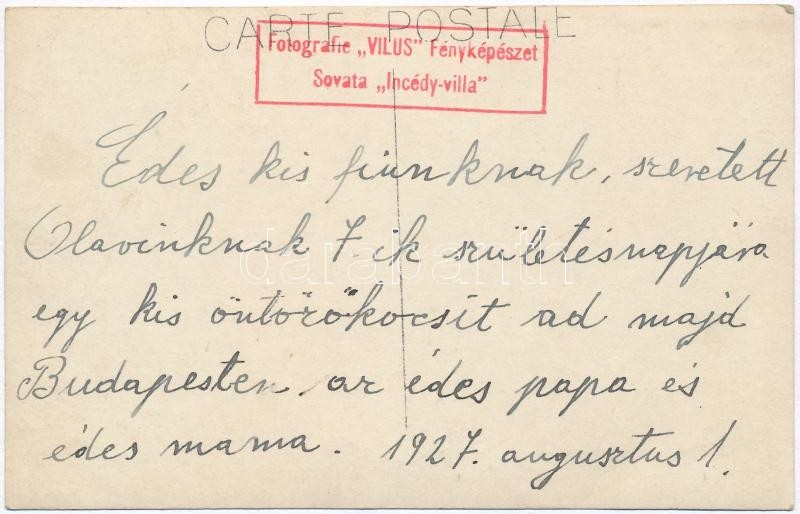 CARTE POSTALE
Fotografie „VILUS" Fényképészet
Sovata „Incédy-villa"
Édes kis fiunknak, szeretett
Olavinknak 7.ik születésnapjára
egy kis öntözőkocsit ad majd
Budapesten az édes papa és
édes mama. 1927. augusztus 1.
darabanth